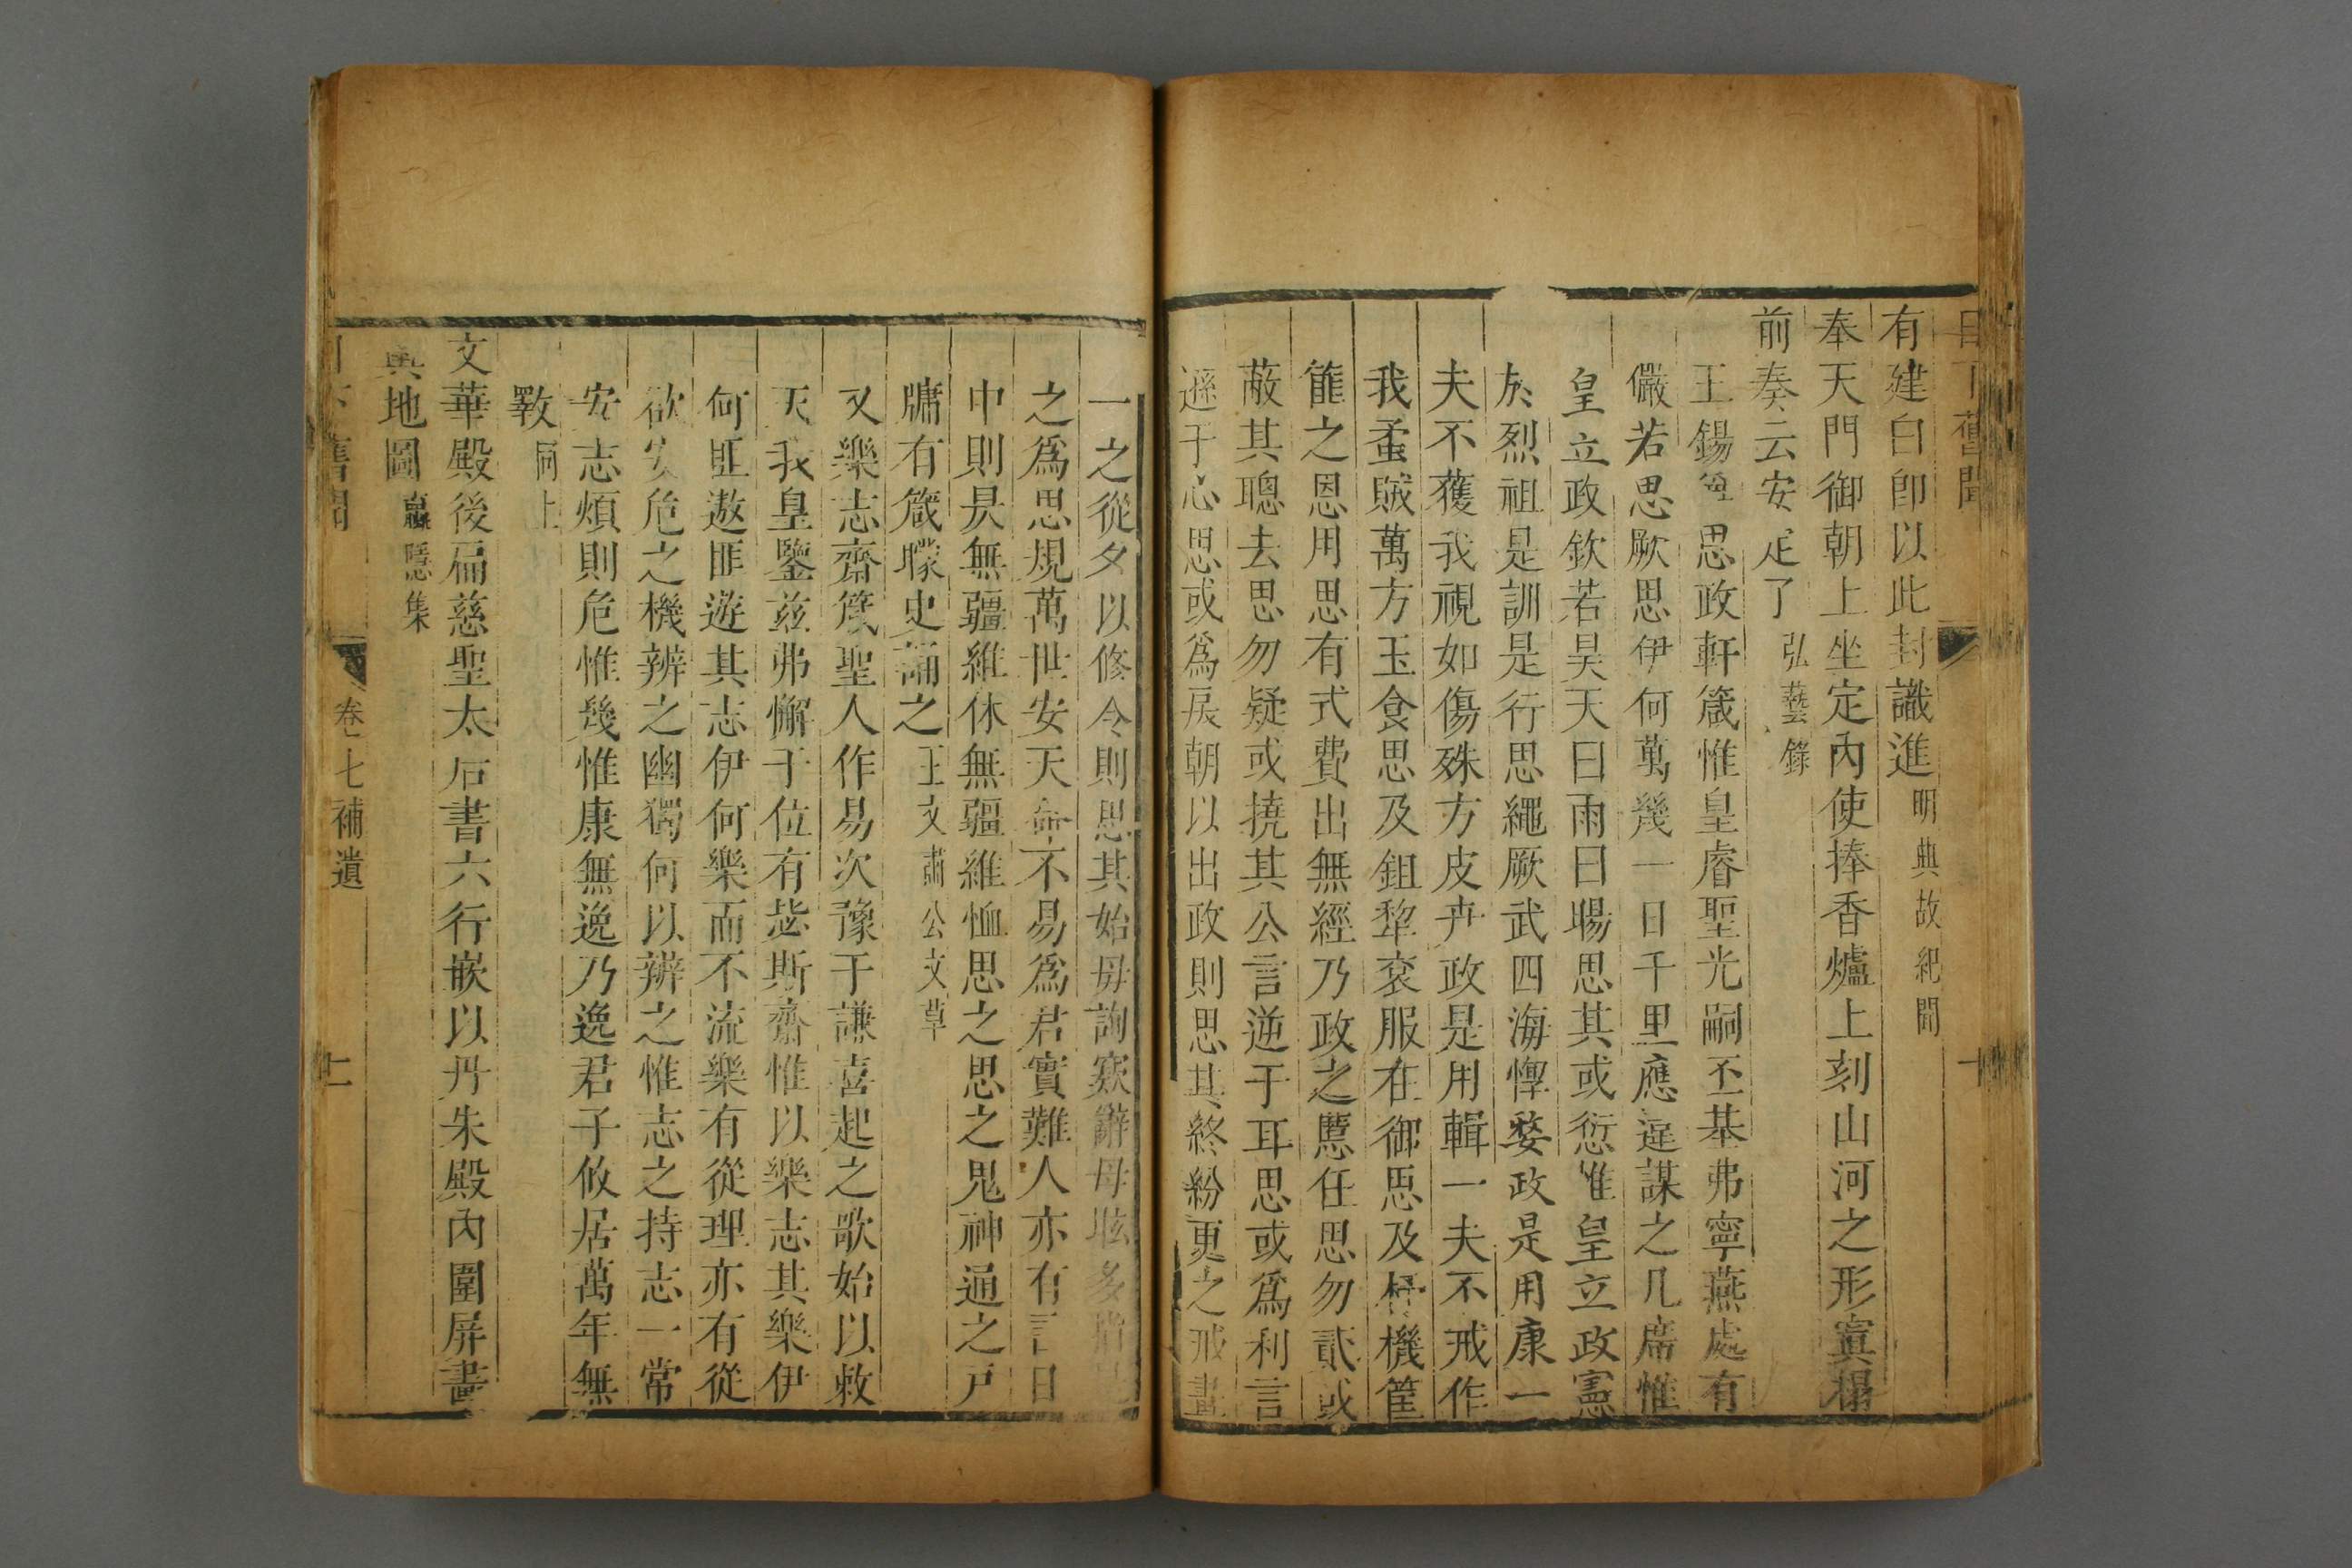 日下舊聞
十
有建白卽以此封識進明典故紀聞
奉天門御朝上坐定內使捧香爐上刻山河之形寘榻
前奏云安定了弘藝錄
王錫爵思政軒箴惟皇睿聖光嗣丕基弗寧燕處有
儼若思厥思伊何萬幾一日千里應遑謀之几席惟
皇立政欽若昊天曰雨曰暘思其或愆惟皇立政憲
於烈祖是訓是行思繩厥武四海惸嫠政是用康一
夫不獲我視如傷殊方皮卉政是用輯一夫不戒作
我蟊賊萬方玉食思及鉏犂袞服在御思及杼機筐
篚之恩用思有式費出無經乃政之慝任思勿貳或
蔽其聰去思勿疑或撓其公言逆于耳思或爲利言
遜于心思或爲戾朝以出政則思其終紛更之戒畫
一之從夕以修令則思其始毋詢窾辭毋眩多
之爲思規萬世安天命不易爲君實難人亦有言日
中則昃無疆維休無疆維恤思之思之鬼神通之戸
牖有箴矇史誦之王文肅公文草
又樂志齋箴聖人作易次豫于謙喜起之歌始以敕
天我皇鑒兹弗懈于位有毖斯齋惟以樂志其樂伊
何匪遨匪遊其志伊何樂而不流樂有從理亦有從
欲安危之機辨之幽獨何以辨之惟志之持志一常
安志煩則危惟幾惟康無逸乃逸君子攸居萬年無
斁同上
文華殿後扁慈聖太后書六行嵌以丹朱殿內圍屏畫
輿地圖蠃隱集
日下舊聞
卷七補遺
十一